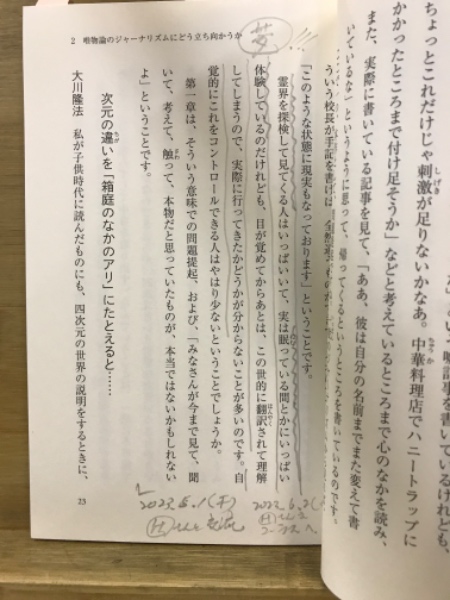 2 唯物論のジャーナリズムにどう立ち向かうか
夢!!!
ちょっとこれだけじゃ刺激が足りないかなあ。中華料理店でハニートラップに
かかったところまで付け足そうか」などと考えているところまで心のなかを読み、
また、実際に書いている記事を見て、「ああ、彼は自分の名前までまた変えて書
いているな」というように思って、帰ってくるというところを書いているのです。
ういう校長が手記を書けば、
「このような状態に現実もなっております」ということです。
霊界を探検して見てくる人はいっぱいいて、実は眠っている間とかにいっぱい
体験しているのだけれども、目が覚めてからあとは、この世的に翻訳されて理解
してしまうので、実際に行ってきたかどうかが分からないことが多いのです。自
覚的にこれをコントロールできる人はやはり少ないということでしょうか。
第一章は、そういう意味での問題提起、および、「みなさんが今まで見て、聞
いて、考えて、触って、本物だと思っていたものが、本当ではないかもしれない
よ」ということです。
次元の違いを「箱庭のなかのアリ」にたとえると……
大川隆法 私が子供時代に読んだものにも、四次元の世界の説明をするときに、
23